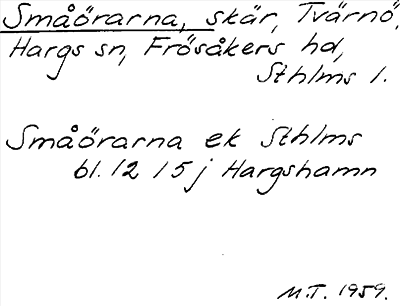 Småörarna, skär, Tvärnö,
Hargs sn, Frösåkers hd,
Sthlms l.
Småörarna ek Sthlms
bl. 12 I 5 j Hargshamn
M.T. 1959.